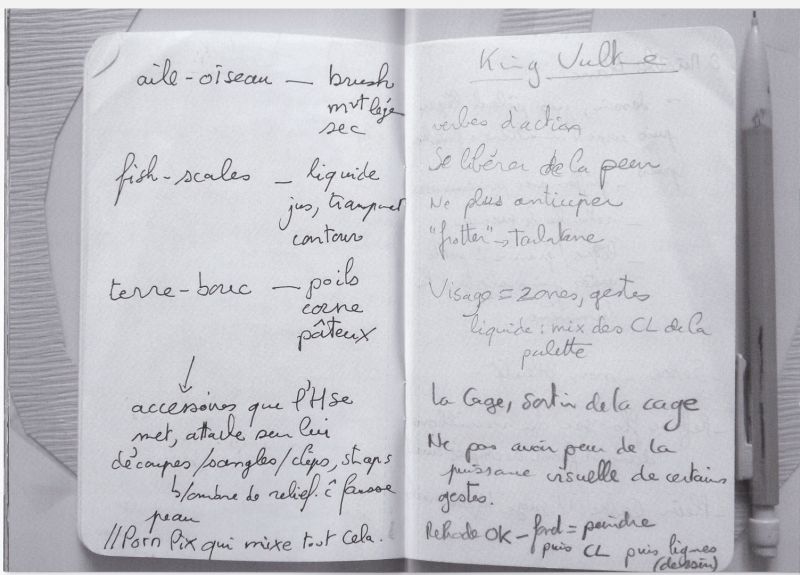 aile-oiseau — brush
mvt légé
sec
fish-scales — liquide
jus, transparent
contours
terre-bouc — poils
corne
pâteux
accessoires que l'H se
met, attache sur lui
découpes/sangles/clips, straps
b/ombre de relief. ĉ fausse
peau
//Porn Pix qui mixe tout cela.
King
verbes d'action
Se libérer de la peur
Ne plus anticiper
"frotter" → tarlatane
Visage = zones, gestes
liquide : mix des CL de la
palette
la Cage, sortir de la cage
Ne pas avoir peur de la
puissance visuelle de certains
gestes.
OK – fond = peindre
puis CL puis lignes
(dessin)